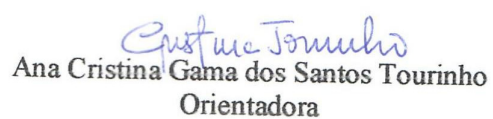 Cristina Tourinho
Ana Cristina Gama dos Santos Tourinho
Orientadora